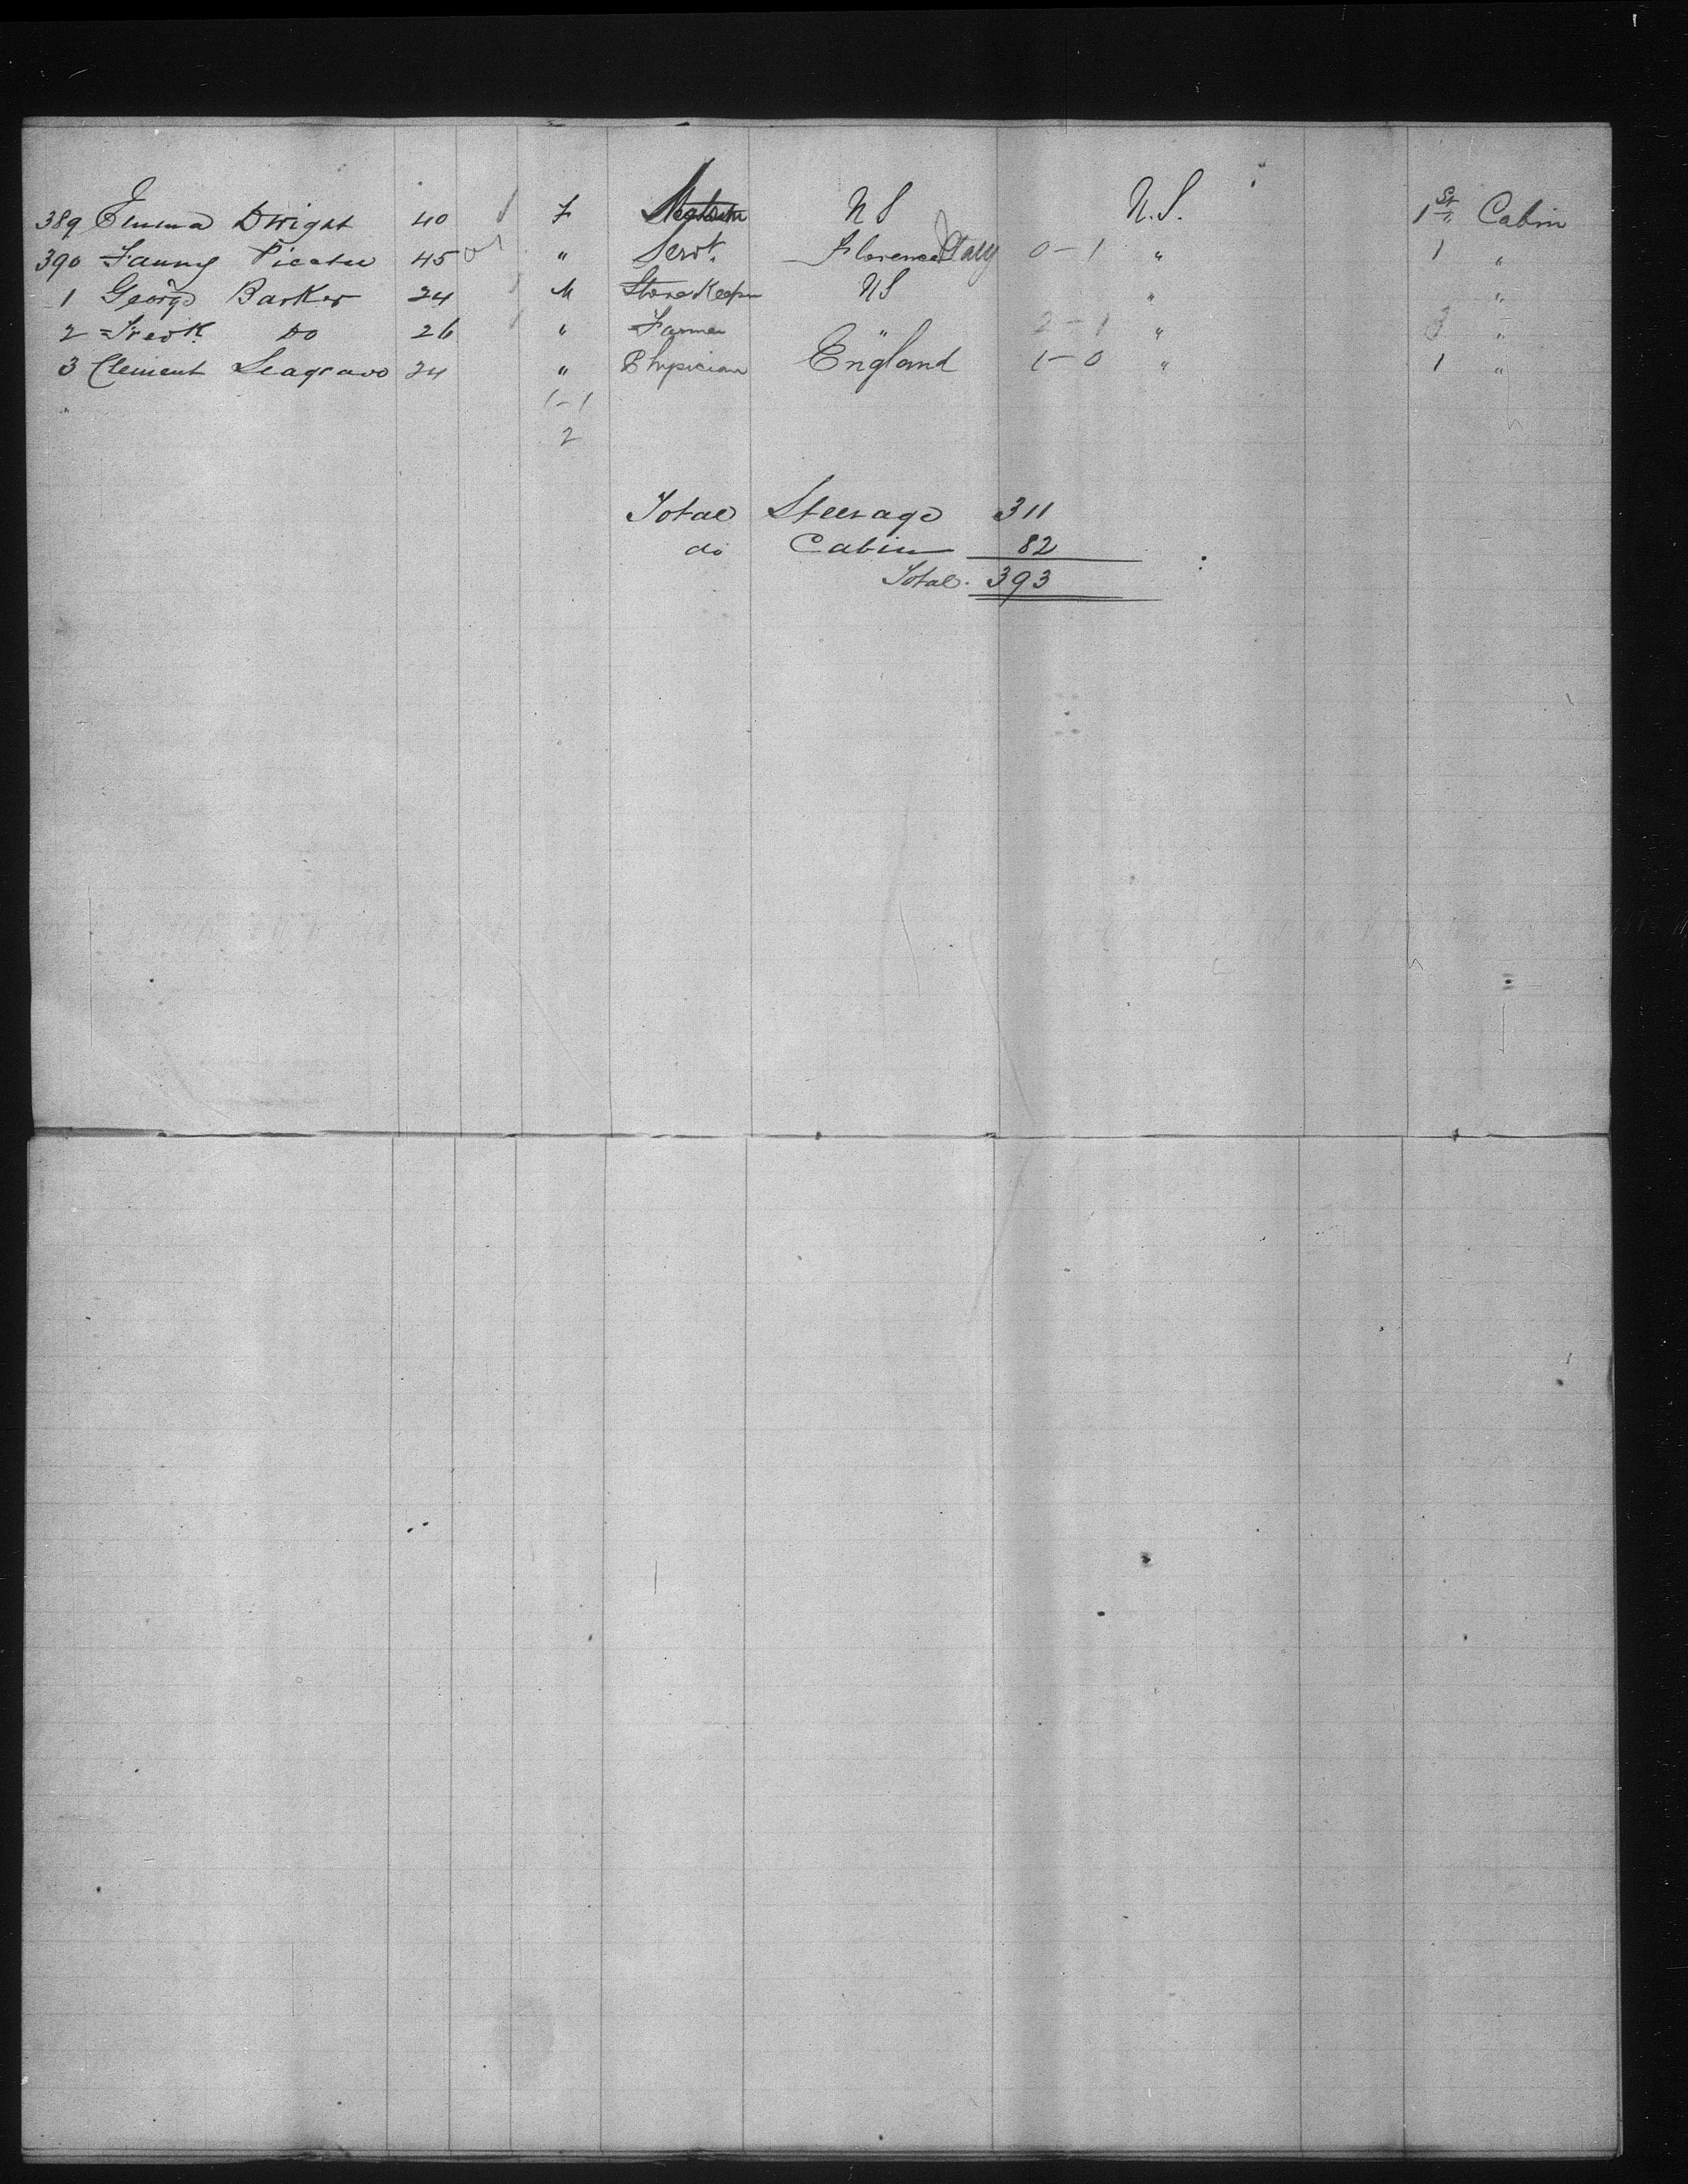 389 Emma Dwight 40 F U S U.S. 1st Cabin
390 Fanny 45 " Servt. Florence Italy 0-1 " 1 "
1 George Barker 24 M Store Keeper U S " "
2 Fredk. Do 26 " Farmer " 2-1 " 3 "
3 Clement Seagrave 24 " Physician England 1-0 " 1 "
1-1
2
Total Steerage 311
do Cabin 82
Total. 393